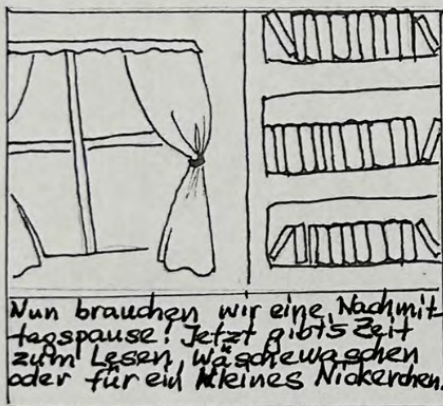 Nun brauchen wir eine Nachmit-
tagspause! Jetzt gibts Zeit
zum Lesen, wäschewaschen
oder für ein kleines Nickerchen.